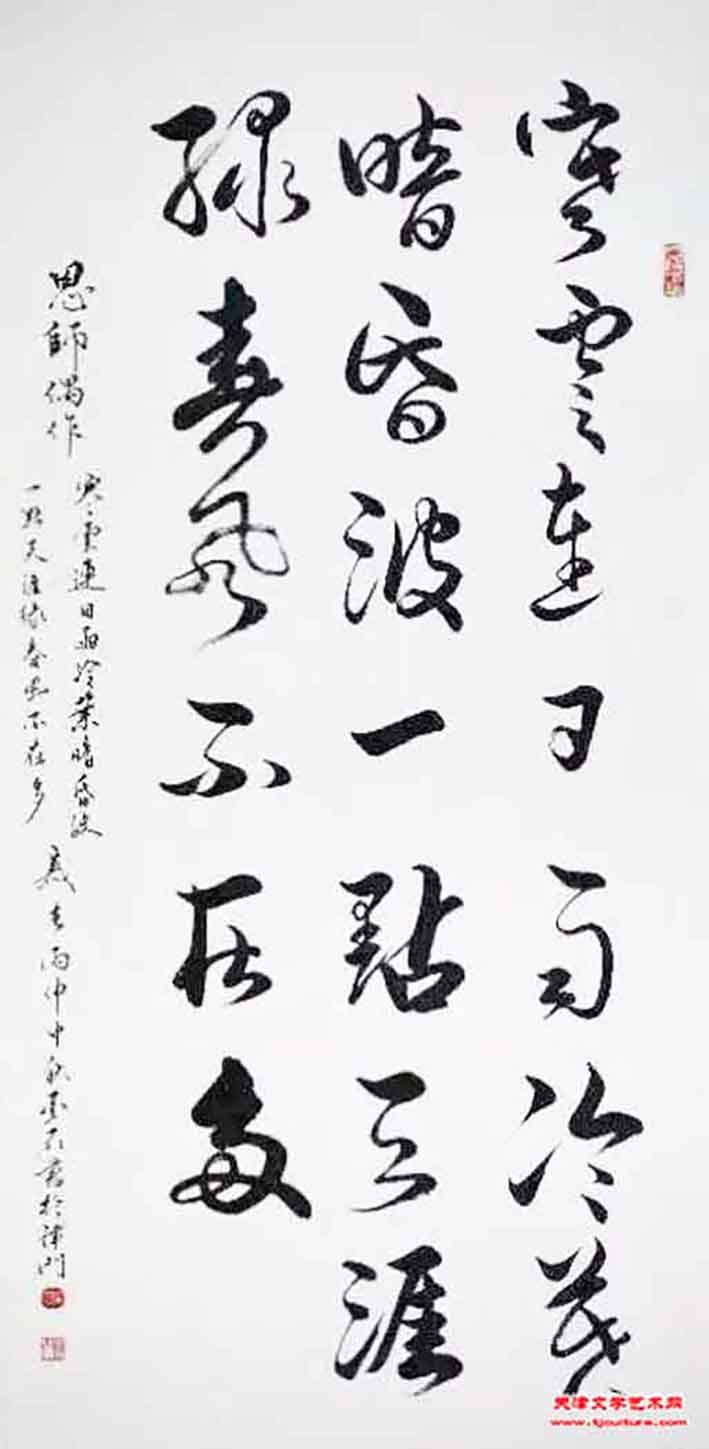 寒雲連日雨冷葉
暗昏波一點天涯
綠春風不在多
思師偶作
寒雲連日雨冷葉暗昏波
一點天涯綠春風不在多
歲在丙申中秋書於津門
天津文学艺术网
www.tjculture.com